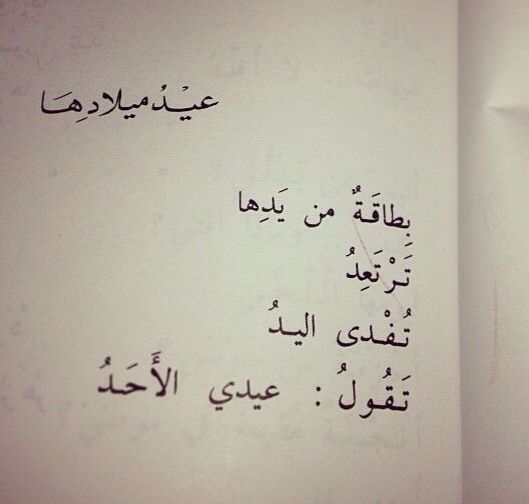 عيْدُ ميلادِهَا
بِطاقَةٌ من يَدِها
تَرْتَعِدُ
تُفْدى اليدُ
تَقُولُ : عيدي الأَحَدُ